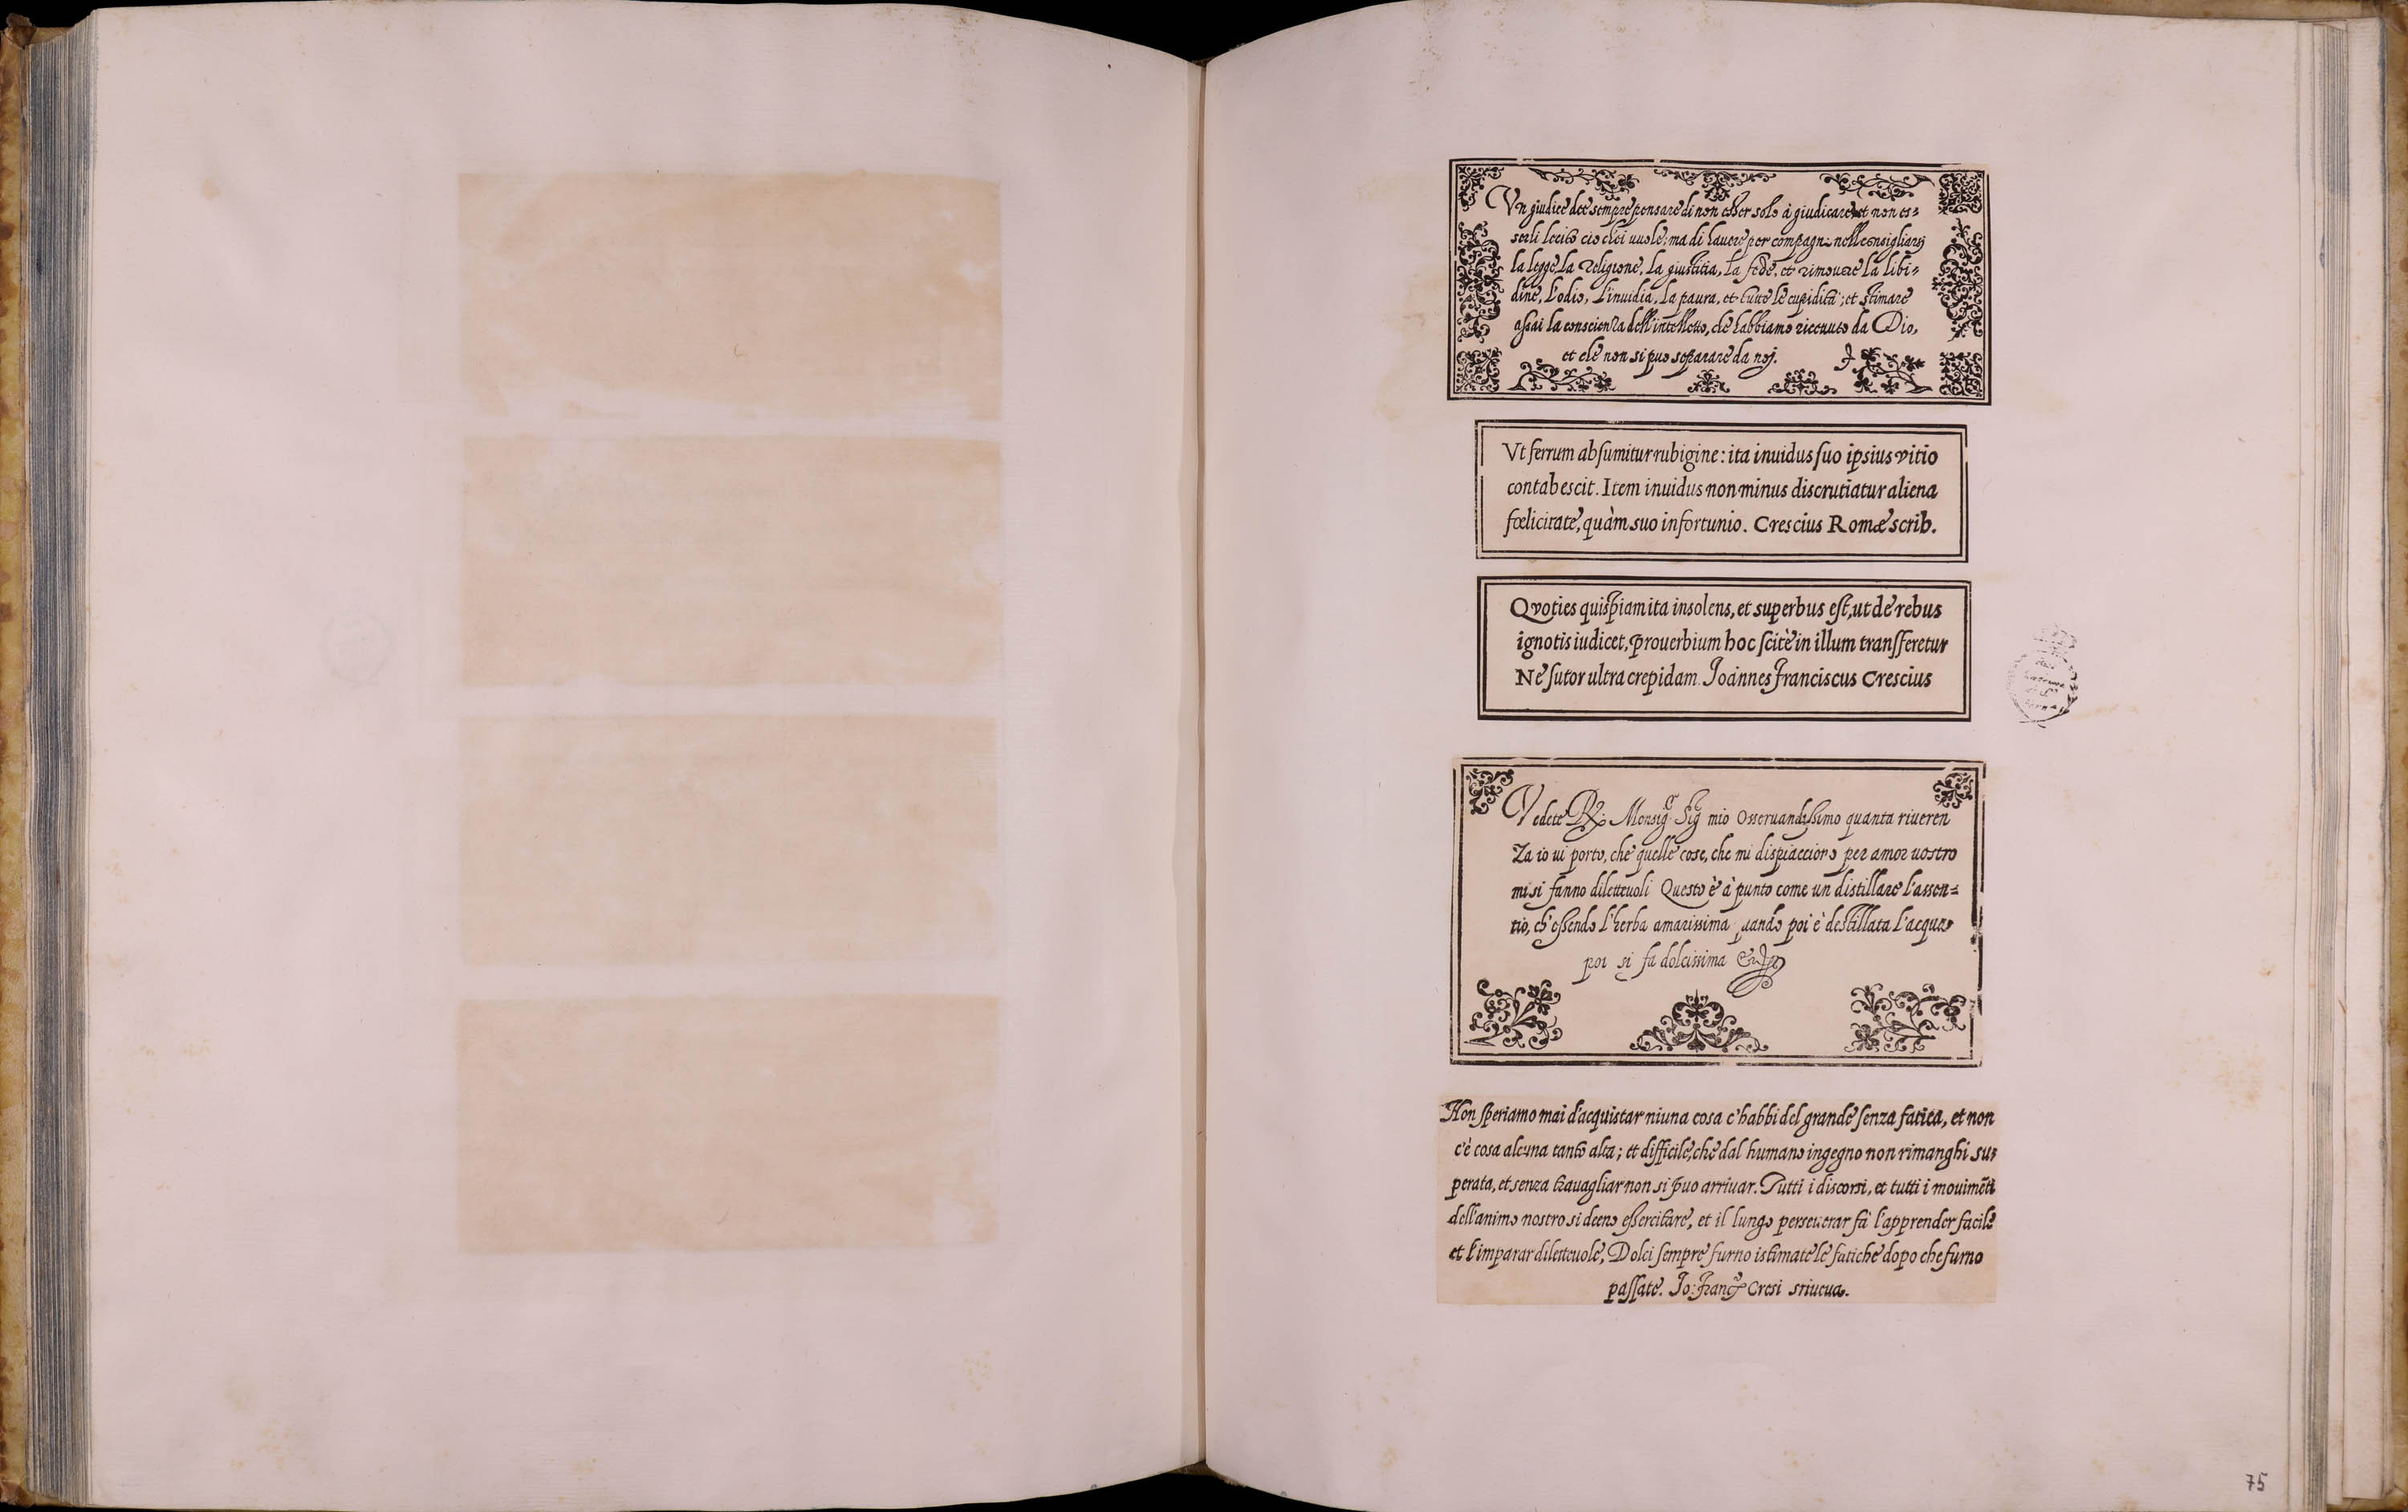 Vn giudice dee sempre pensare di non esser solo à giudicare, et non es=
serli lecito cio ch'ei uuole; ma di hauere per compagni nell consigliarsi
la legge, la religione, la giustitia, la fede, et rimouere la libi=
dine, l'odio, l'inuidia, la paura, et tutte le cupidità; et stimare
assai la conscienza dell'intelletto, che habbiamo riceuuto da Dio,
et che non si puo separare da noj.
Vt ferrum absumitur rubigine: ita inuidus suo ipsius vitio
contabescit. Item inuidus non minus discrutiatur aliena
fœlicitate, quàm suo infortunio. Crescius Romæ scrib.
Qvoties quispiam ita insolens, et superbus est, ut de rebus
ignotis iudicet, prouerbium hoc scitè in illum transferetur
Ne sutor ultra crepidam. Joannes Franciscus Crescius
Vedete Monsig.r Sig.r mio osseruandissimo quanta riueren
za io ui porto, che quelle cose, che mi dispiacciono per amor uostro
mi si fanno diletteuoli Questo è à punto come un distillare l'assen=
tio, ch'essendo l'herba amarissima quando poi è destillata l'acqua
poi si fa dolcissima
Non speriamo mai d'acquistar niuna cosa c'habbi del grande senza fatica, et non
c'è cosa alcuna tanto alta; et difficile, che dal humano ingegno non rimanghi su=
perata, et senza trauagliar non si puo arriuar. Tutti i discorsi, et tutti i mouimēti
dell'animo nostro si deeno essercitare, et il lungo perseuerar fà l'apprender facile
et l'imparar diletteuole, Dolci sempre furno istimate le fatiche dopo che furno
passate. Jo: Franc.o Cresi sriueua.
75